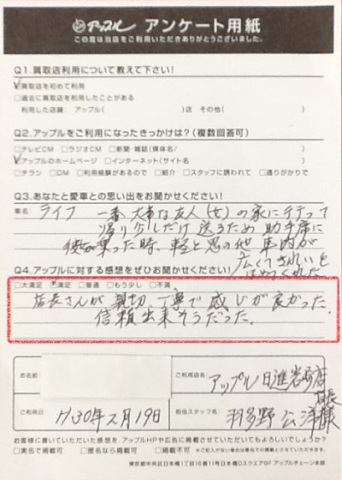 アップル アンケート用紙
この度は当店をご利用いただきありがとうございました。
Q1.買取店利用について教えて下さい!
□買取店を初めて利用
□過去に買取店を利用したことがある
利用した店舗: アップル( )店 その他( )
Q2.アップルをご利用になったきっかけは?(複数回答可)
□テレビCM □ラジオCM □新聞・雑誌(媒体名/ )
□アップルのホームページ □インターネット(サイト名 )
□チラシ □DM □利用経験があるので □紹介 □スタッフに誘われて □通りがかりで
Q3.あなたと愛車との思い出をお聞かせください!
車名: ライフ 一番大事な友人(女)の家に行って
帰り少しだけ送るため助手席に
彼女乗った時、軽と思の他車内が
広くてきれいと
ほめてくれた
Q4.アップルに対する感想をぜひお聞かせください!
□大満足 □満足 □普通 □もう少し □不満
店長さんが親切、丁寧で感じが良かった。
信頼出来そうだった。
お名前
ご利用店名
アップル日進岩崎店
店長
ご利用日
H30年2月19日
担当スタッフ名
羽多野 公洋様
お客様に書いていただいた感想を、アップルHPや広告に掲載させていただいてもよろしいでしょうか?
□実名で掲載可 □匿名なら掲載可 □掲載不可
東京都中央区日本橋1丁目10番11号日本橋DスクエアBF アップルチェーン本部